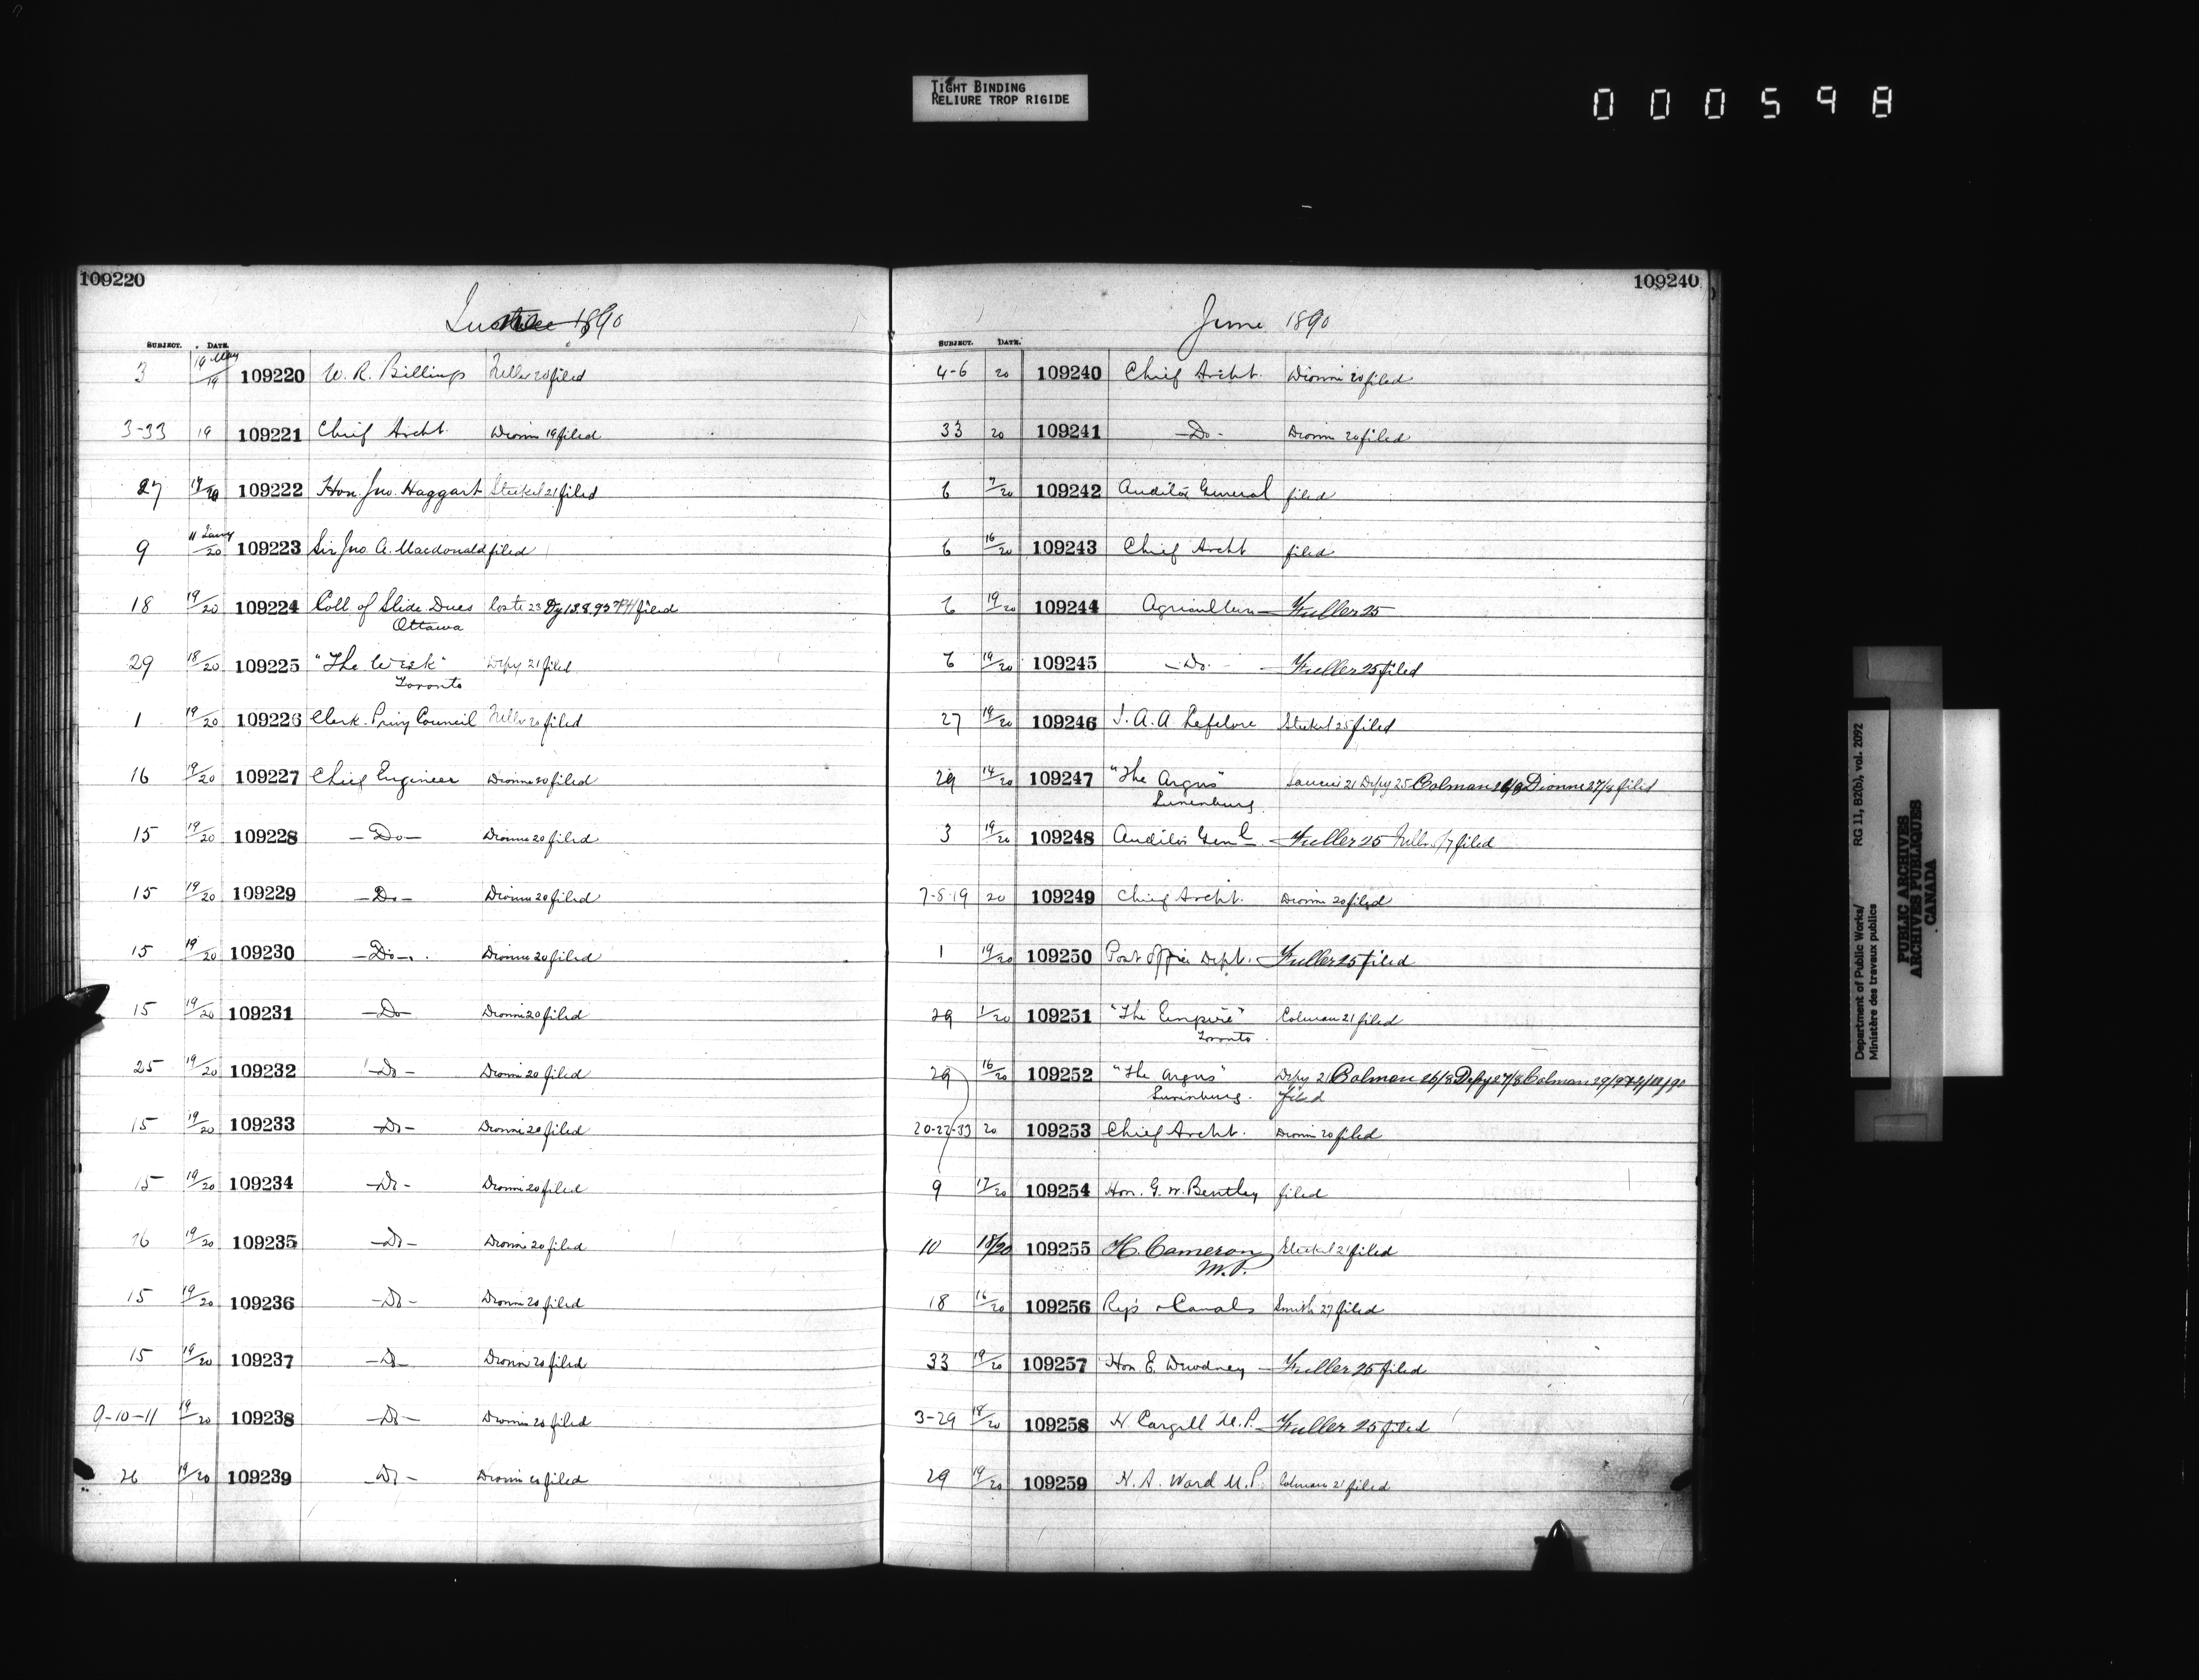 TIGHT BINDING
RELIURE TROP RIGIDE
000598
109220
1890
SUBJECT. DATE.
3 19 May/19 109220 W. R. Billings 20 filed
3-33 19 109221 Chief Archt. Dionne 19 filed
27 109222 Hon. Jno. Haggart Steckel 21 filed
9 11 Jany/20 109223 Sir Jno. A. Macdonald filed
18 19/20 109224 Coll. of Slide Dues Coste 23 filed
Ottawa
29 18/20 109225 "The Week" Depy 21 filed
Toronto
1 19/20 109226 Clerk Privy Council 20 filed
16 19/20 109227 Chief Engineer Dionne 20 filed
15 19/20 109228 -Do- Dionne 20 filed
15 19/20 109229 -Do- Dionne 20 filed
15 19/20 109230 -Do- Dionne 20 filed
15 19/20 109231 -Do- Dionne 20 filed
25 19/20 109232 -Do- Dionne 20 filed
15 19/20 109233 -Do- Dionne 20 filed
15 19/20 109234 -Do- Dionne 20 filed
16 19/20 109235 -Do- Dionne 20 filed
15 19/20 109236 -Do- Dionne 20 filed
15 19/20 109237 -Do- Dionne 20 filed
9-10-11 19/20 109238 -Do- Dionne 20 filed
26 19/20 109239 -Do- Dionne 20 filed
109240
June 1890
SUBJECT. DATE.
4-6 20 109240 Chief Archt. Dionne 20 filed
33 20 109241 -Do- Dionne 20 filed
6 7/20 109242 Auditor General filed
6 16/20 109243 Chief Archt filed
6 19/20 109244 Agriculture Fuller 25
6 19/20 109245 -Do- Fuller 25 filed
27 19/20 109246 J. A. A Lefebvre Steckel 25 filed
29 14/20 109247 "The Argus" 21 Depy 25 Colman Dionne 27/9 filed
Lunenburg
3 19/20 109248 Auditor Genl Fuller 25 filed
7-8-19 20 109249 Chief Archt. Dionne 20 filed
1 19/20 109250 Post Office Dept. Fuller 25 filed
29 1/20 109251 "The Empire" Colman 21 filed
Toronto
29 16/20 109252 "The Argus" Depy 21 Colman 26/8 Depy 27/8 Colman
Lunenburg. filed
20-22-33 20 109253 Chief Archt. Dionne 20 filed
9 17/20 109254 Hon. G. W. Bentley filed
10 18/20 109255 H. Cameron Steckel 21 filed
M.P.
18 16/20 109256 Rys & Canals Smith 27 filed
33 19/20 109257 Hon E. Dewdney Fuller 25 filed
3-29 18/20 109258 H. Cargill M.P. Fuller 25 filed
29 19/20 109259 H. A. Ward M.P. Colman 21 filed
Department of Public Works/ RG 11, B2(b), vol. 2092
Ministère des travaux publics
PUBLIC ARCHIVES
ARCHIVES PUBLIQUES
CANADA